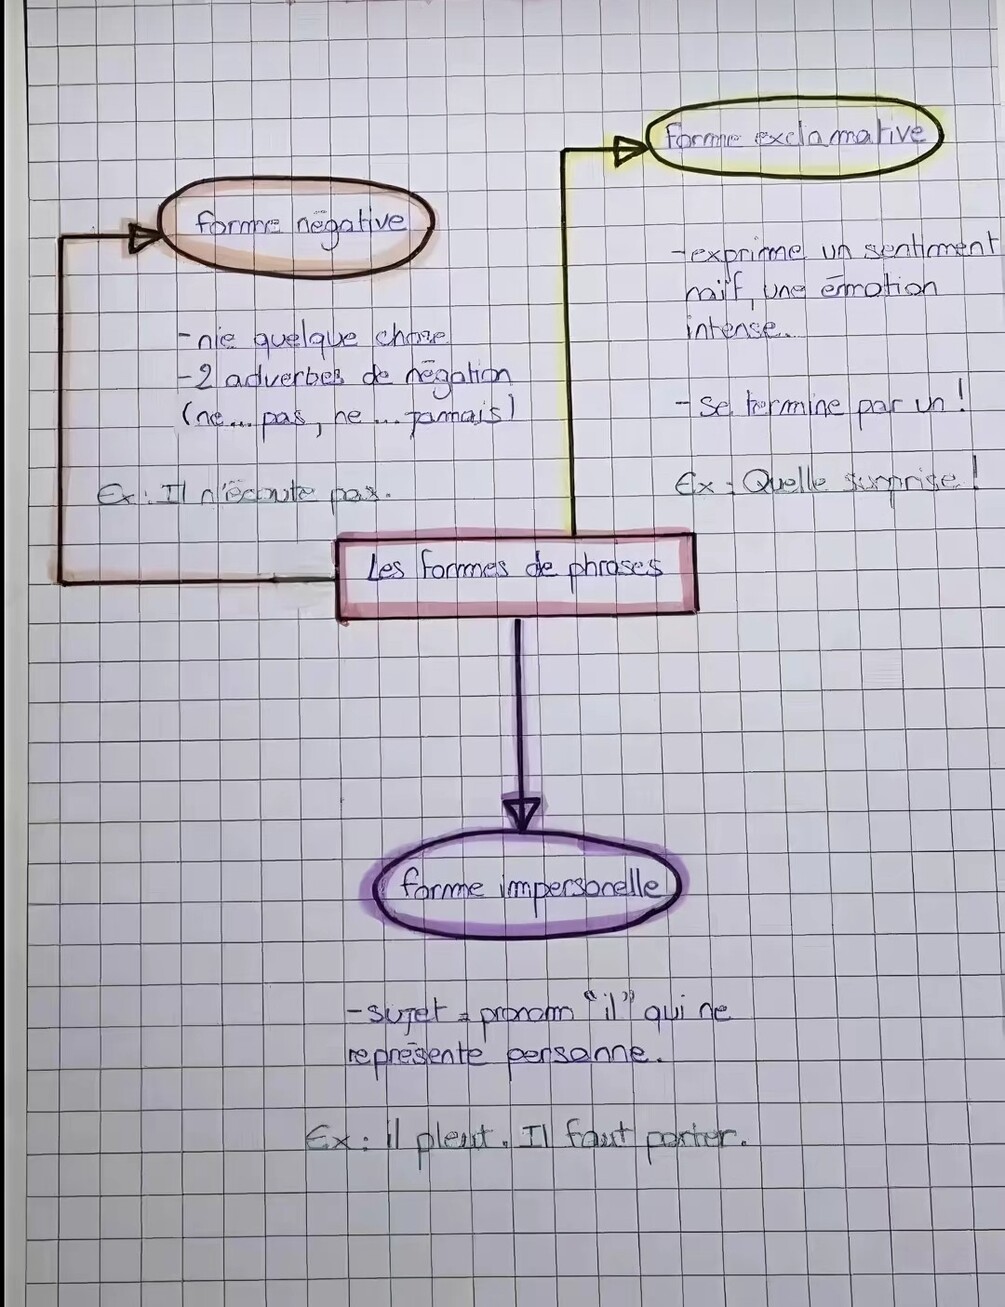 forme exclamative
forme négative
-exprime un sentiment
vif, une émotion
intense.
-nie quelque chose
-2 adverbes de négation
(ne... pas, ne... jamais)
-Se termine par un !
Ex: Il n'écoute pas.
Ex: Quelle surprise !
Les formes de phrases
forme impersonelle
-sujet = pronom "il" qui ne
représente personne.
Ex: il pleut. Il faut porter.